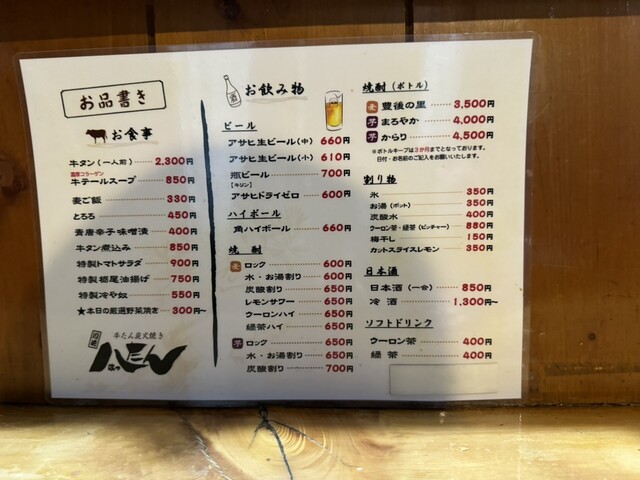 お品書き
お食事
牛タン（一人前） 2,300円
濃厚コラーゲン
牛テールスープ 850円
麦ご飯 330円
とろろ 450円
青唐辛子味噌漬 400円
牛タン煮込み 850円
特製トマトサラダ 900円
特製栃尾油揚げ 750円
特製冷や奴 550円
★本日の厳選野菜焼き 300円〜
牛たん炭火焼き
たん
酒
お飲み物
ビール
アサヒ生ビール（中） 660円
アサヒ生ビール（小） 610円
瓶ビール 700円
【キリン】
アサヒドライゼロ 600円
ハイボール
角ハイボール 660円
焼酎
麦 ロック 600円
水・お湯割り 600円
炭酸割り 650円
レモンサワー 650円
ウーロンハイ 650円
緑茶ハイ 650円
芋 ロック 650円
水・お湯割り 650円
炭酸割り 700円
焼酎（ボトル）
麦 豊後の里 3,500円
芋 まろやか 4,000円
芋 からり 4,500円
※ボトルキープは3か月までとなっております。
日付・お名前のご記入をお願いいたします。
割り物
氷 350円
お湯（ポット） 350円
炭酸水 400円
ウーロン茶・緑茶（ピッチャー） 880円
梅干し 150円
カットスライスレモン 350円
日本酒
日本酒（一合） 850円
冷酒 1,300円〜
ソフトドリンク
ウーロン茶 400円
緑茶 400円